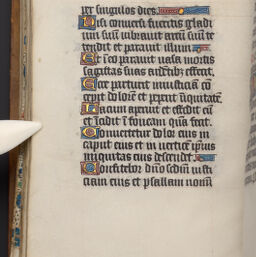 per singulos dies.
Nisi conuersi fueritis gladi
um suũ uibrauit arcũ suũ te
tendit et parauit illum
Et ĩ eo parauit uasa mortis
sagittas suas ardẽtib⁹ effecit.
Ecce parturit iniusticiã cõ
cepit dolorẽ et peperit iniquitatẽ.
Lacum aperuit et effodit eũ
et ĩcidit ĩ foueam quã fecit.
Conuertetur dolor eius in
caput eius et in uerticẽ ip̃ius
iniquitas eius descendet.
Confitebor dñõ scdm̃ iusti
ciam eius et psallam nomĩ